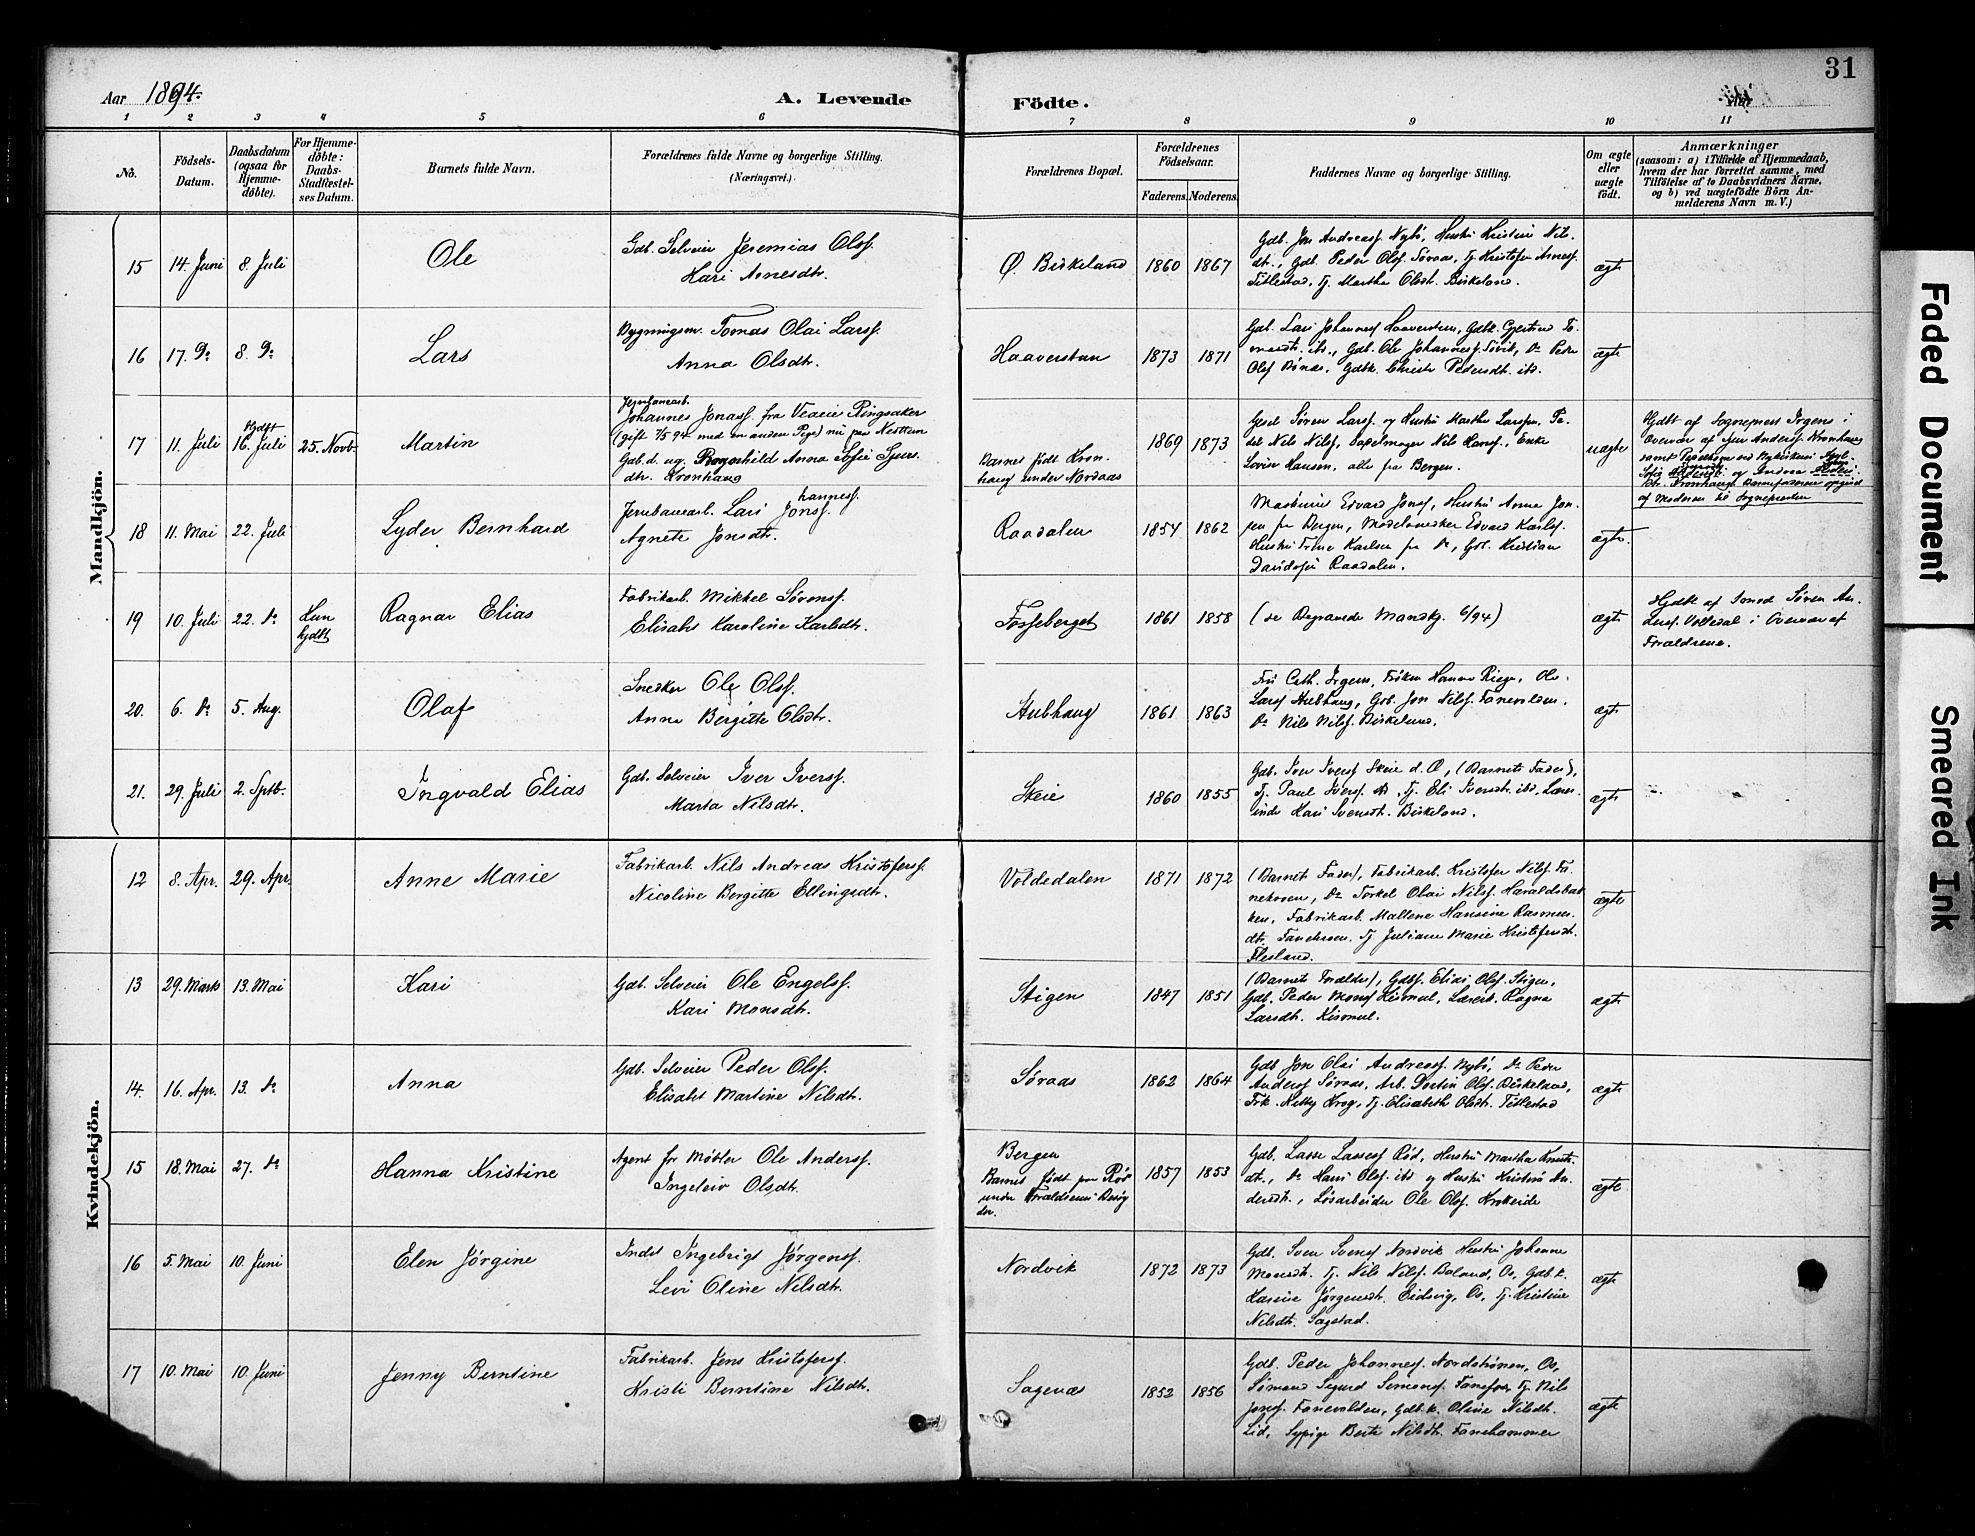 31
Aar 1894.
A. Levende Födte.
1 2 3 4 5 6 7 8 9 10 11
No.
Födsels-Datum.
Daabsdatum (ogsaa for Hjemme-döbte).
For Hjemme-döbte: Daabs-Stadfæstel-ses Datum.
Barnets fulde Navn.
Forældrenes fulde Navne og borgerlige Stilling.
(Næringsvei.)
Forældrenes Bopæl.
Forældrenes Födselsaar.
Faderens. Moderens.
Faddernes Navne og borgerlige Stilling.
Om ægte eller uægte födt.
Anmærkninger
(saasom: a) i Tilfælde af Hjemmedaab,
hvem der har forrettet samme, med
Tilföielse af to Daabsvidners Navne,
og b) ved uægtefödte Börn An-
melderens Navn m. V.)
Mandkjön.
15 14. Juni 8. Juli
Ole
Gdb. Selveier Jeremias Olsf.
Kari Arnesdtr.
Ø. Birkeland
1860 1867
Gdb. Jon Andreasf. Nybö, Hustru Kristine Nils-
dt., Gdb. Peder Olsf. Söraas, Tj. Kristofer Arnesf.
Titlestad, Tj. Martha Olsdt. Birkeland.
ægte
16 17. Do 8. Do
Lars
Bygningsm. Tomas Olai Larsf.
Anna Olsdtr.
Haaverstun
1873 1871
Gdb. Lars Johannesf. Haaverstun, Gdbk. Gjertrud To-
masdt. ibd., Gdb. Ole Johannesf. Sörvik, Do Peder
Olsf. Bönæs, Gdbk. Christi Pedersdt. ibd.
ægte
17 11. Juli Hjdbt 16. Juli 25. Novb.
Martin
Jernbanearb.
Johannes Jonasf. fra Veaeie Ringsaker
(gift 7/5 94 med en anden Pige) nu paa Nesttun
Gdb. d. ug. Ragnhild Anna Sofie Sjurs-
dtr. Kronhaug
Barnet födt Kron-
haug under Nordaas
1869 1873
uægte
18 11. Mai 22. Juli
Lyder Bernhard
Jernbanearb. Lars Johannesf.
Agnete Jonsdt.
Raadalen
1854 1862
Maskinist Edvard Jonsf, Hustru Anna Jon-
sen fra Bergen, Modelsnedker Edvard Karlsf.
Hustru Trine Karlsen fra Do, Gbr. Kristian
Davidsen Raadalen.
ægte.
19 10. Juli 22. do Kun hjdbt
Ragnar Elias
Fabrikarb. Mikkel Sörensf.
Elisabet Karoline Karlsdtr.
Fosseberget
1861 1858
(se Begravede Mandkj. 6/94)
ægte
Hjdbt af Smed Sören An-
dersf. Voldedal i Overvær af
Forældrene.
20. 6. do 5. Aug.
Olaf
Snedker Ole Olsf.
Anna Bergitte Olsdtr.
Stubhaug
1861 1863
Fru Cath. Irgens, Fröken Hanna Riege, Ole
Larsf Stubhaug, Gdb. Jon Nilsf. Fanevolden.
Do Nils Nilsf. Birkeland.
ægte
21. 29. Juli 2. Sptb.
Ingvald Elias
Gdb. Selveier Iver Iversf.
Marta Nilsdtr.
Skeie
1860 1855
Gdb. Iver Iversf Skeie d. Æ, (Barnets Fader),
Tj. Paul Iversf do, Tj. Eli Iversdt. ibd, Lærer-
inde Kari Svensdt. Birkeland.
ægte
Kvindekjön.
12 8. Apr. 29. Apr.
Anne Marie
Fabrikarb. Nils Andreas Kristofersf.
Nicoline Bergitte Ellingsdtr.
Voldedalen
1871 1872
(Barnets Fader), Fabrikarb. Kristofer Nilsf. Fa-
nekroen, Do Torkel Olai Nilsf. Haraldsbak-
ken, Fabrikarb. Mallene Hansine Rasmus-
dtr. Fanekroen. Tj Juliane Marie Kristofersdt.
Flesland.
ægte
13 29. Marts 13. Mai
Kari
Gdb. Selveier Ole Engelsf.
Kari Monsdtr.
Stigen
1847 1851
(Barnets Forældre), Gdbf. Elias Olsf. Stigen,
Gdb. Peder Monsf Kismul, Lærerk. Ragna
Larsdtr. Kismul.
ægte
14. 16. Apr. 13. do
Anna
Gdb. Selveier Peder Olsf.
Elisabet Martine Nilsdtr.
Söraas
1862 1864
Gdb Jon Olai Andreasf. Nybö, Do Peder
Andersf Söraas, Arb. Dortin Olsf. Birkeland,
Frk. Kitty Krog, Tj. Elisabeth Olsdtr. Titlestad
ægte
15 18. Mai 27. do
Hanna Kristine
Agent for Möbler Ole Andersf.
Ingeleiv Olsdtr.
Bergen
Barnet födt paa Röd
under Forældrenes Besög
der.
1857 1853
Gdb. Lasse Lassesf Röd, Hustru Martha Knuts-
dt., Do Hans Olsf. ibd og Hustru Kristine An-
dersdt., Lösarbeider Ole Olsf. Krokeide
ægte
16 5. Mai 10. Juni
Elen Jörgine
Inds Ingebrigt Jörgensf.
Levi Oline Nilsdtr.
Nordvik
1872 1873
Gdb. Sven Svensf Nordvik Hustru Johanne
Monsdt. Tj. Nils Nilsf. Boland, Os, Gdb.k.
Hansine Jörgensdt. Eidsvig, Os, Tj. Kristine
Nilsdt. Sagstad.
ægte
17 10. Mai 10. Juni
Jenny Berntine
Fabrikarb. Jens Kristofersf.
Kristi Berntine Nilsdtr.
Sagenæs
1852 1856
Gdb. Peder Johannesf. Nordströnen, Os,
Sömand Sigurd Simonsf. Fanefos, Tj. Nils
Jonsf. Fanevolden, Gdb.k. Oline Nilsdt.
Lid, Sypige Berte Nilsdt. Fanehammer
ægte
Faded Document
Smeared Ink